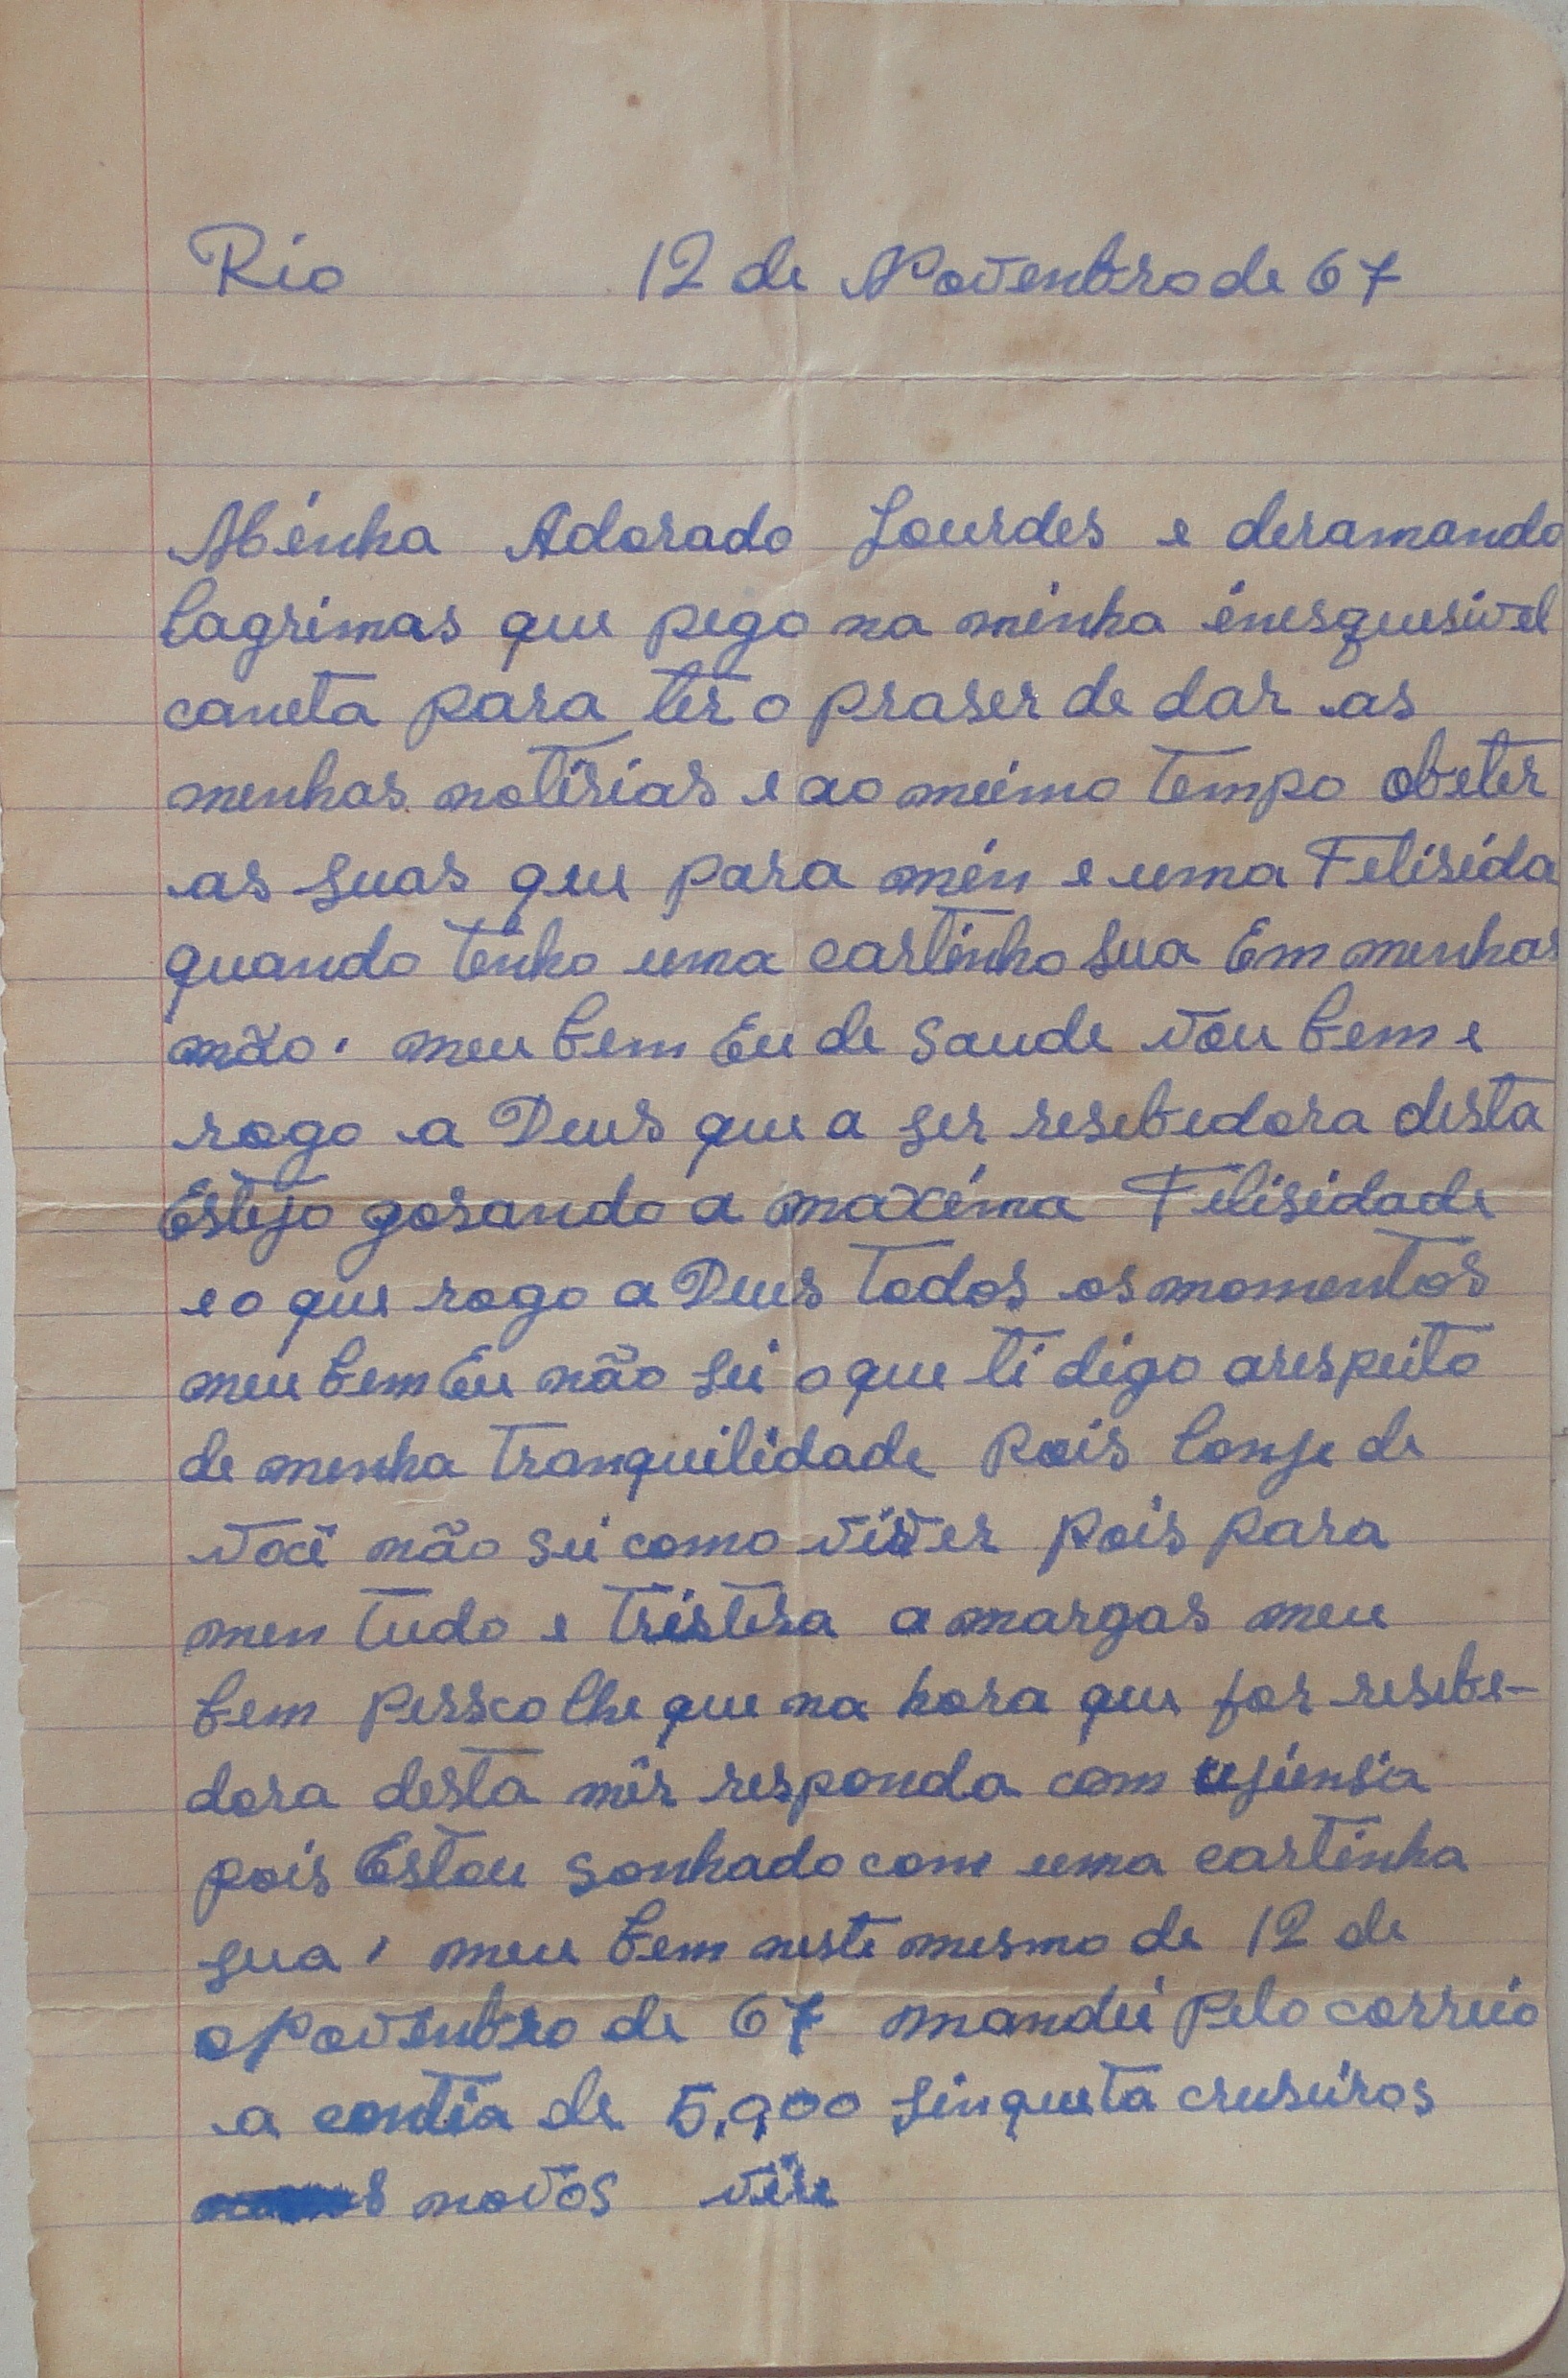 Rio 12 de Novenbro de 67
Minha Adorada Lourdes e deramando
lagrimas que pego na minha inesquesivel
caneta para ter o praser de dar as
menhas notisias e ao meimo tempo obeter
as suas que para min e uma Felisida
quando tenho uma cartinha sua Em menhas
mão. meu bem Eu de saude vou bem e
rogo a Deus que a ser resebedora desta
Esteja gosando a maxima Felisidade
e o que rogo a Deus todos os momentos
meu bem Eu não sei o que ti digo arespeito
de menha tranquilidade pois lonje de
você não sei como viver pois para
men tudo e tristesa amargas meu
bem pessco lhe que na hora que for resebe-
dora desta mir responda com
pois Estou sonhado com uma cartinha
sua, meu bem neste mesmo de 12 de
Novenbro de 67 mandei pelo correio
a contia de 5,000 sinqueta cruseiros
novos